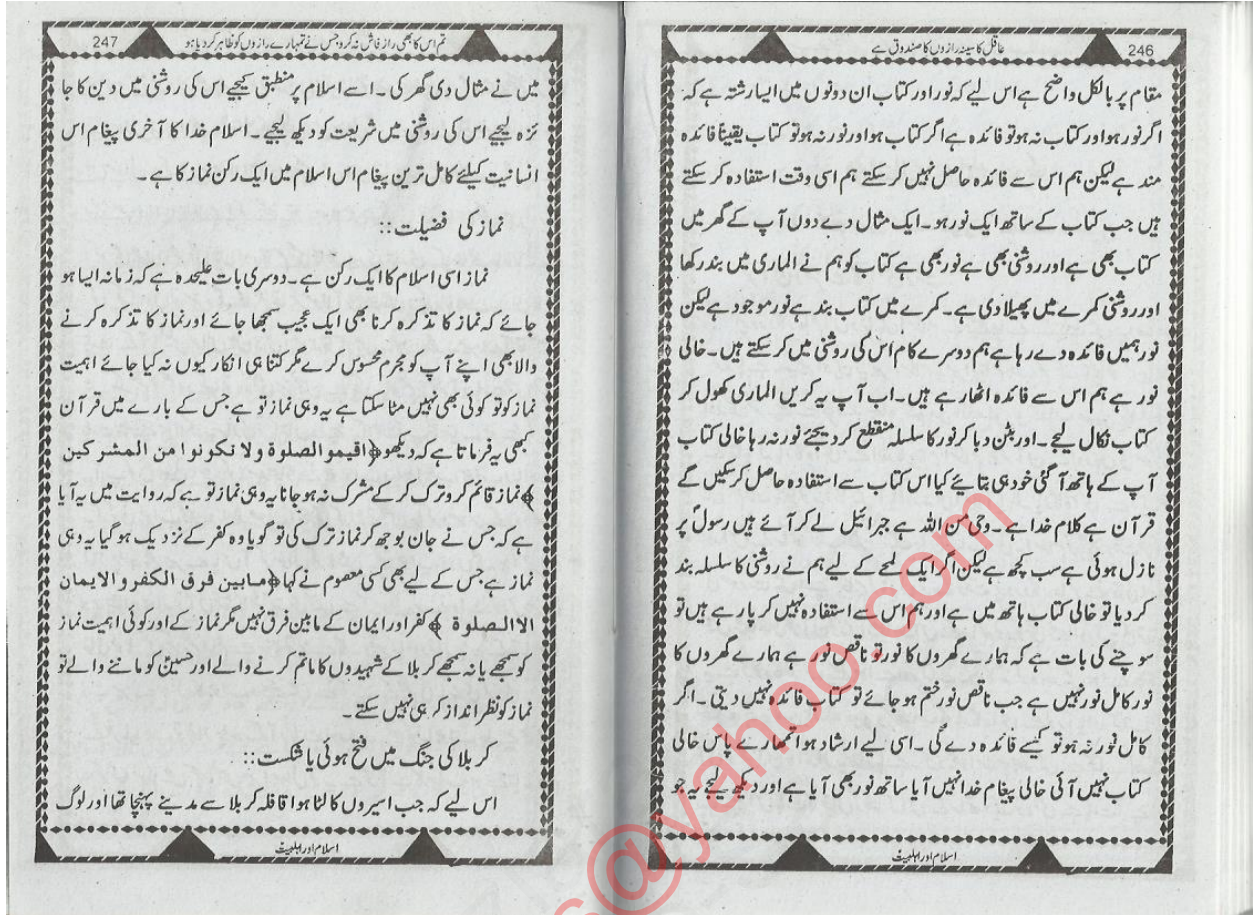 246
عاقل کا سینہ رازوں کا صندوق ہے
مقام پر بالکل واضح ہے اس لیے کہ نور اور کتاب ان دونوں میں ایسا رشتہ ہے کہ
اگر نور ہو اور کتاب نہ ہو تو فائدہ ہے اگر کتاب ہو اور نور نہ ہو تو کتاب یقیناً فائدہ
مند ہے لیکن ہم اس سے فائدہ حاصل نہیں کر سکتے ہم اسی وقت استفادہ کر سکتے
ہیں جب کتاب کے ساتھ ایک نور ہو۔ ایک مثال دے دوں آپ کے گھر میں
کتاب بھی ہے اور روشنی بھی ہے نور بھی ہے کتاب کو ہم نے الماری میں بند رکھا
اور روشنی کمرے میں پھیلا دی ہے۔ کمرے میں کتاب بند ہے نور موجود ہے لیکن
نور ہمیں فائدہ دے رہا ہے ہم دوسرے کام اس کی روشنی میں کر سکتے ہیں۔ خالی
نور ہے ہم اس سے فائدہ اٹھا رہے ہیں۔ اب آپ یہ کریں الماری کھول کر
کتاب نکال لیجے۔ اور بٹن دبا کر نور کا سلسلہ منقطع کر دیجئے نور نہ رہا خالی کتاب
آپ کے ہاتھ آ گئی خود ہی بتائیے کیا اس کتاب سے استفادہ حاصل کر سکیں گے
قرآن ہے کلام خدا ہے۔ وحی من اللہ ہے جبرائیل لے کر آئے ہیں رسولؐ پر
نازل ہوئی ہے سب کچھ ہے لیکن اگر ایک لمحے کے لیے ہم نے روشنی کا سلسلہ بند
کر دیا تو خالی کتاب ہاتھ میں ہے اور ہم اس سے استفادہ نہیں کر پا رہے ہیں تو
سوچنے کی بات ہے کہ ہمارے گھروں کا نور تو ناقص نور ہے ہمارے گھروں کا
نور کامل نور نہیں ہے جب ناقص نور ختم ہو جائے تو کتاب فائدہ نہیں دیتی۔ اگر
کامل نور نہ ہو تو کیسے فائدہ دے گی۔ اسی لیے ارشاد ہوا تمھارے پاس خالی
کتاب نہیں آئی خالی پیغام خدا نہیں آیا ساتھ نور بھی آیا ہے اور دیکھ لیجے یہ جو
اسلام اور اہلبیتؑ
247
تم اس کا بھی راز فاش نہ کرو جس نے تمہارے رازوں کو ظاہر کر دیا ہو
میں نے مثال دی گھر کی۔ اسے اسلام پر منطبق کیجیے اس کی روشنی میں دین کا جا
ئزہ لیجیے اس کی روشنی میں شریعت کو دیکھ لیجیے۔ اسلام خدا کا آخری پیغام اس
انسانیت کیلئے کامل ترین پیغام اس اسلام میں ایک رکن نماز کا ہے۔
نماز کی فضیلت::
نماز اسی اسلام کا ایک رکن ہے۔ دوسری بات علیحدہ ہے کہ زمانہ ایسا ہو
جائے کہ نماز کا تذکرہ کرنا بھی ایک عجیب سمجھا جائے اور نماز کا تذکرہ کرنے
والا بھی اپنے آپ کو مجرم محسوس کرے مگر کتنا ہی انکار کیوں نہ کیا جائے اہمیت
نماز کو تو کوئی بھی نہیں مٹا سکتا ہے یہ وہی نماز تو ہے جس کے بارے میں قرآن
کبھی یہ فرماتا ہے کہ دیکھو ﴿اقیموالصلوة ولا تکونوا من المشرکین
﴾ نماز قائم کرو ترک کر کے مشرک نہ ہو جانا یہ وہی نماز تو ہے کہ روایت میں یہ آیا
ہے کہ جس نے جان بوجھ کر نماز ترک کی تو گویا وہ کفر کے نزدیک ہو گیا یہ وہی
نماز ہے جس کے لیے بھی کسی معصوم نے کہا ﴿مابین فرق الکفر و الایمان
الاالصلوة ﴾ کفر اور ایمان کے مابین فرق نہیں مگر نماز کے اور کوئی اہمیت نماز
کو سمجھے یا نہ سمجھے کربلا کے شہیدوں کا ماتم کرنے والے اور حسینؑ کو ماننے والے تو
نماز کو نظر انداز کر ہی نہیں سکتے۔
کربلا کی جنگ میں فتح ہوئی یا شکست::
اس لیے کہ جب اسیروں کا لٹا ہوا قافلہ کربلا سے مدینے پہنچا تھا اور لوگ
اسلام اور اہلبیتؑ
s@yahoo.com